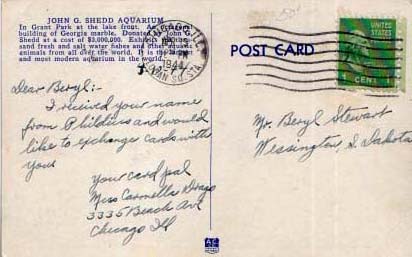 JOHN G. SHEDD AQUARIUM
In Grant Park at the lake front. An
building of Georgia marble. Donated by John G.
Shedd at a cost of $3,000,000. Exhibits
sand fresh and salt water fishes and other aquatic
animals from all over the world. It is the largest
and most modern aquarium in the world.
1944
POST CARD
UNITED STATES
1 CENT
Dear Beryl:-
I received your name
from and would
like to exchange cards with
you
your card pal
Miss Carmella Drago
3335 Beach Ave
Chicago Ill
Mr. Beryl Stewart
Wessington, S. Dakota